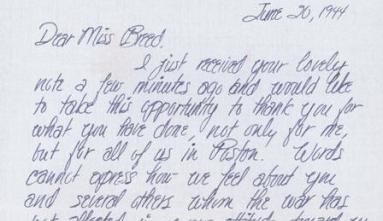 June 20, 1944
Dear Miss Breed.
I just received your lovely
note a few minutes ago and would like
to take this opportunity to thank you for
what you have done, not only for me,
but for all of us in Poston. Words
cannot express how we feel about you
and several others whom the war has
not affected in your attitude toward us